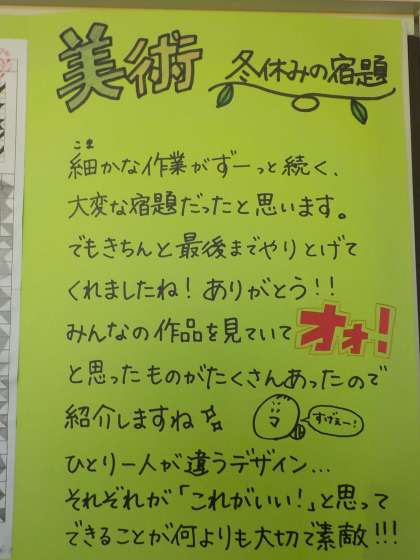 美術 冬休みの宿題
こま
細かな作業がずーっと続く、
大変な宿題だったと思います。
でもきちんと最後までやりとげて
くれましたね！ありがとう！！
みんなの作品を見ていて オォ！
と思ったものがたくさんあったので
紹介しますね
すげぇー！
ひとり一人が違うデザイン…
それぞれが「これがいい！」と思って
できることが何よりも大切で素敵！！！